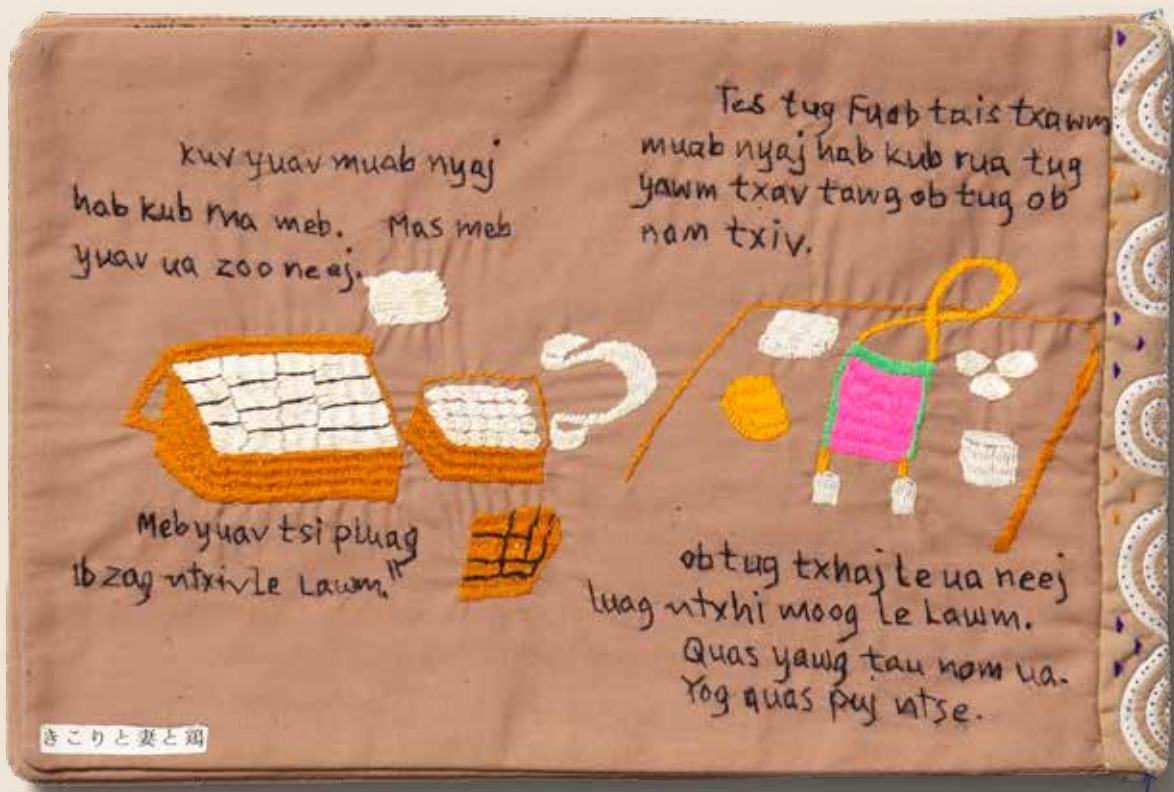 kuv yuav muab nyaj
hab kub rua meb. Mas meb
yuav ua zoo neej.
Meb yuav tsi pluag
ib zag ntxiv le Lawm."
Tes tug Fuab tais txawm
muab nyaj hab kub rua tug
yawm txav tawg ob tug ob
nam txiv.
ob tug txhaj le ua neej
luag ntxhi moog le Lawm.
Quas yawg tau nom ua.
Yog quas puj ntse.
きこりと妻と鶏